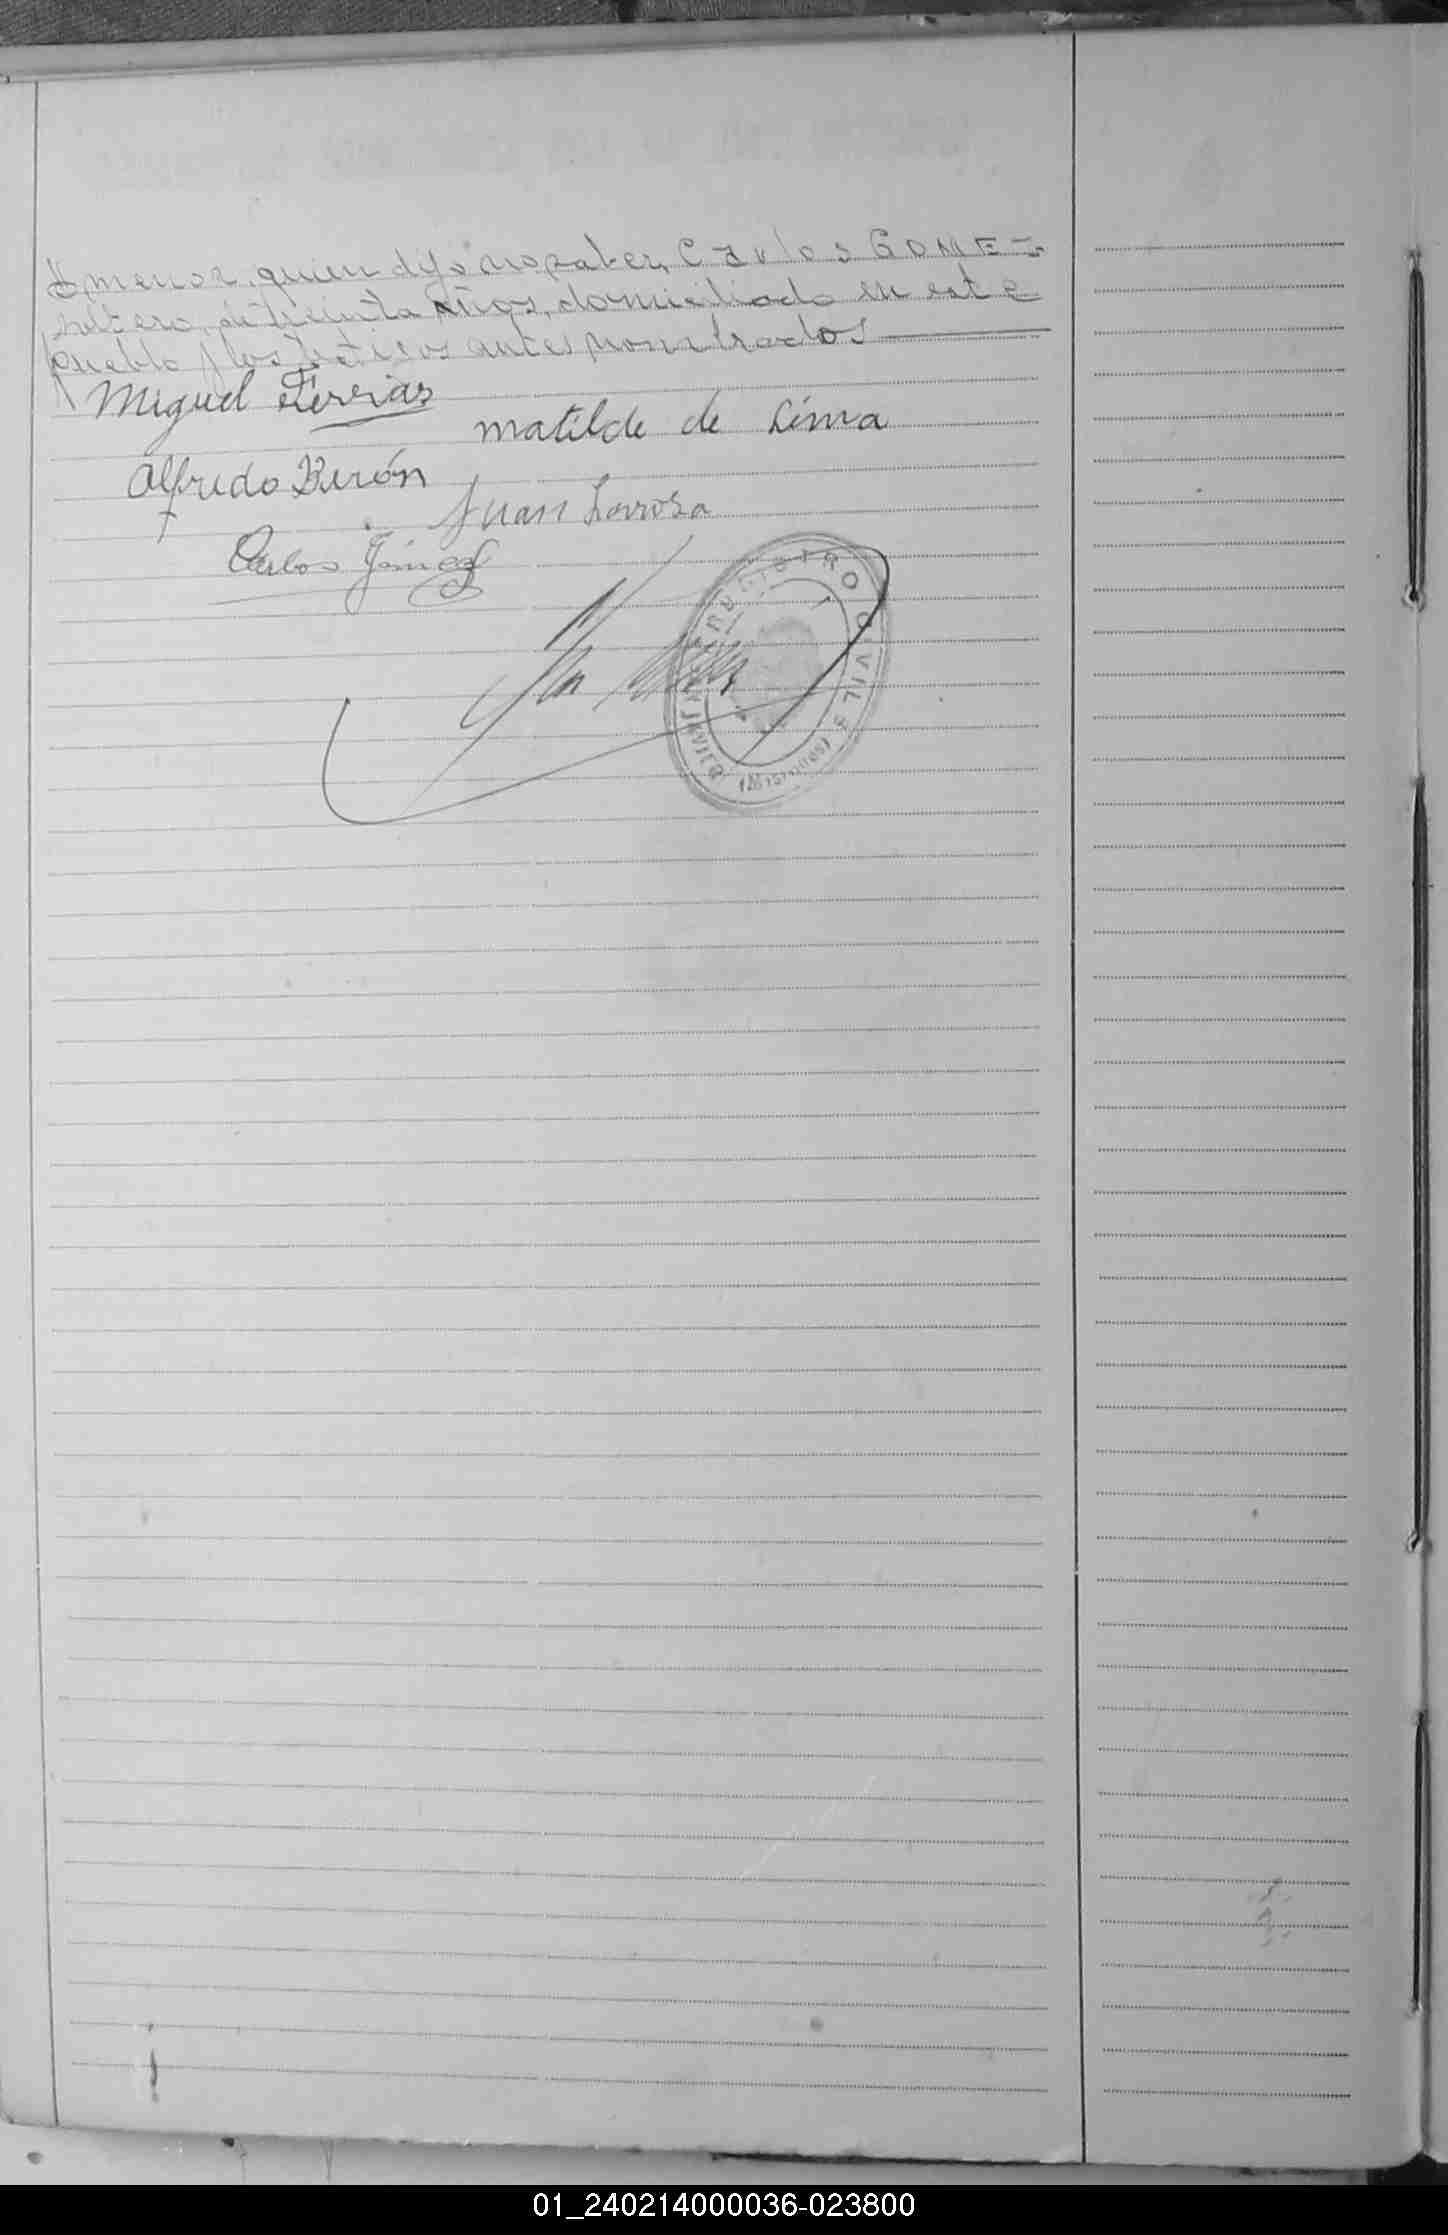 menor, quien dijo no saber, Carlos GOMEZ
soltero, de treinta años, domiciliado en este
pueblo y los testigos antes nombrados
Miguel Ferrias
Matilde de Lima
Alfredo Berón
Juan Larrosa
Carlos Gómez
REGISTRO CIVIL
JAVIER (Misiones)
01_240214000036-023800